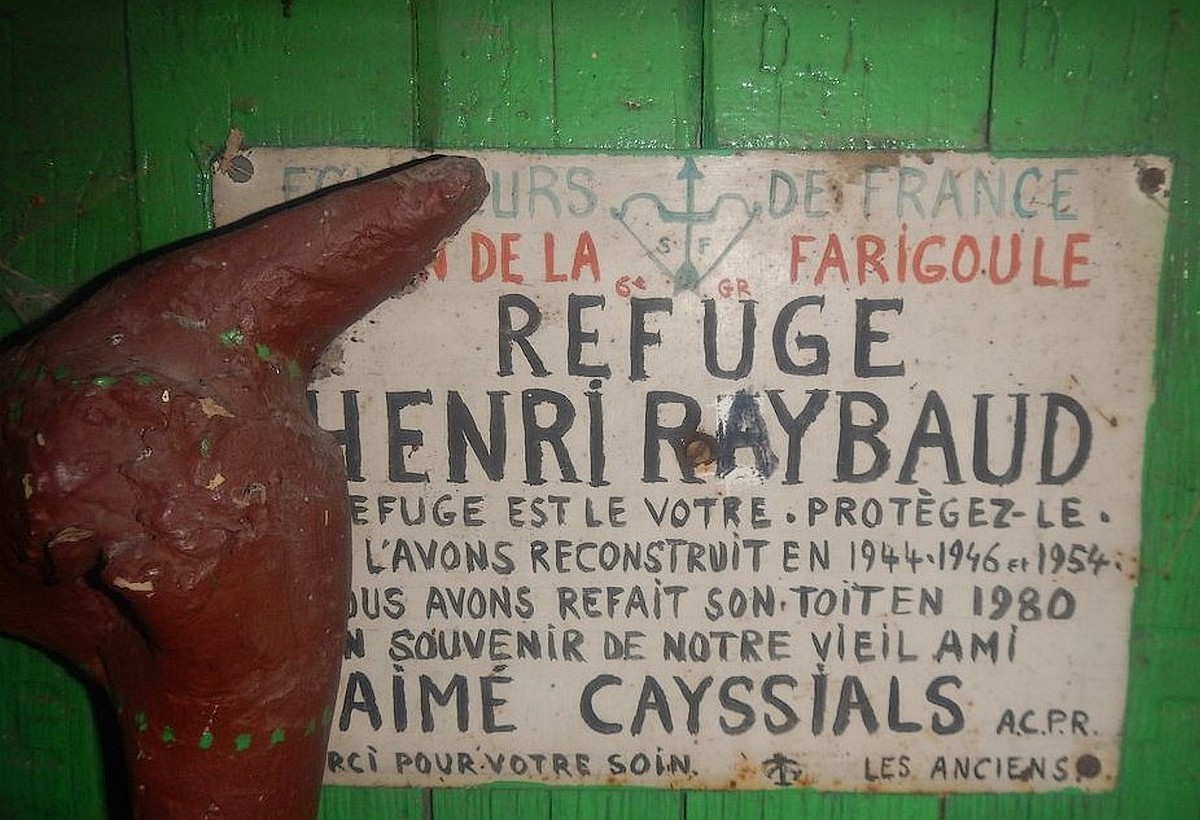 URS DE FRANCE
DE LA FARIGOULE
S F
6e GR
REFUGE
HENRI RAYBAUD
EFUGE EST LE VOTRE. PROTÈGEZ-LE.
L'AVONS RECONSTRUIT EN 1944.1946 et 1954.
OUS AVONS REFAIT SON TOIT EN 1980
N SOUVENIR DE NOTRE VIEIL AMI
AIMÉ CAYSSIALS A.C.P.R.
RCI POUR VOTRE SOIN. LES ANCIENS.